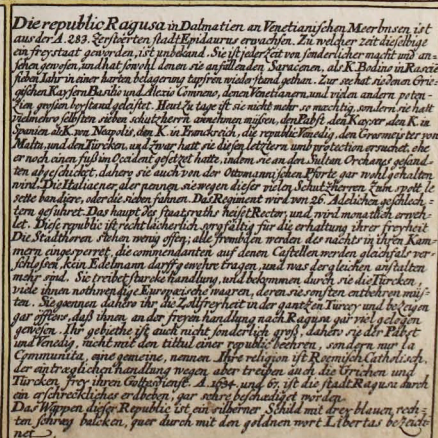 Die republic Ragusa in Dalmatien an Venetianischen Meerbusen ist
aus der A. 283. zerstoerten stadt Epidaurus erwachsen. Zu welcher zeit dieselbige
ein freystaat geworden, ist unbekand. Sie ist jederzeit von sonderlicher macht und an-
sehen gewesen, und hat sowohl denen sie anfallenden Saracenen, als K. Bodino in Rascie
sieben Jahr in einer harten belagerung tapfren wiederstand gethan. Zur see hat sie denen Grie-
gischen Kaysern Basilii und Alexio Comneno, denen Venetianern, und vielen andern poten-
zien grossen beystand geleistet. Heut zu tage ist sie nicht mehr so maechtig, sondern sie hatt
vielmehr selbsten sieben schutzherrn annehmen müssen, den Pabst, den Kayser, den K. in
Spanien als K. von Neapolis, den K. in Franckreich, die republic Venedig, den Grosmeister von
Malta, und den Türcken, und zwar hatt sie diesen letztern umb protection ersuchet, ehe
er noch einen fuß im Occident gesetzet hatte, indem sie an den Sultan Orchanes gesand-
ten abgeschicket, dahero sie auch von der Ottomannischen Pforte gar wohl gehalten
wird. Die Italiaener aber nennen sie wegen dieser vielen Schutzherren zum spott, le
sette bandiere, oder die sieben fahnen. Das Regiment wird von 26. Adelichen geschlech-
tern geführet. Das haupt des staatsraths heiset Rector, und wird monatlich erweh-
let. Diese republic ist recht lächerlich sorgfältig für die erhaltung ihrer freyheit
Die Stadtthoren stehen wenig offen; alle frembden werden des nachts in ihren Kam-
mern eingesperret, die commendanten auf denen Castellen werden gleichfals ver-
schlossen, kein Edelmann darff gewehre tragen, und was dergleichen anstalten
mehr sind. Sie treibet starcke handlung, und bekommen durch sie die Türcken
viele ihnen nothwendige Europaeische waaren, deren sie sonsten entbehren müs-
ten. Sie goennen dahero ihr die Zollfreyheit in der gantzen Türcey und bezeigen
gar offters, daß ihnen an der freyen handlung nach Ragusa gar viel gelegen
gewesen. Ihr gebiethe ist auch nicht sonderlich groß, daher sie der Pabst
und Venedig, nicht mit den tittul einer republic beehren, sondern nur la
Communita, eine gemeine, nennen. Ihre religion ist Roemisch Catholisch,
der eintraeglichen handlung wegen aber treiben auch die Grichen und
Türcken frey ihren Gottesdienst. A. 1634. und 67. ist die stadt Ragusa durch
ein erschreckliches erdbeben, gar sehre beschaediget worden.
Das Wappen dieser Republic ist ein silberner Schild mit drey blauen rech-
ten schreg balcken, quer durch mit den goldnen wort Libertas bezeich-
net